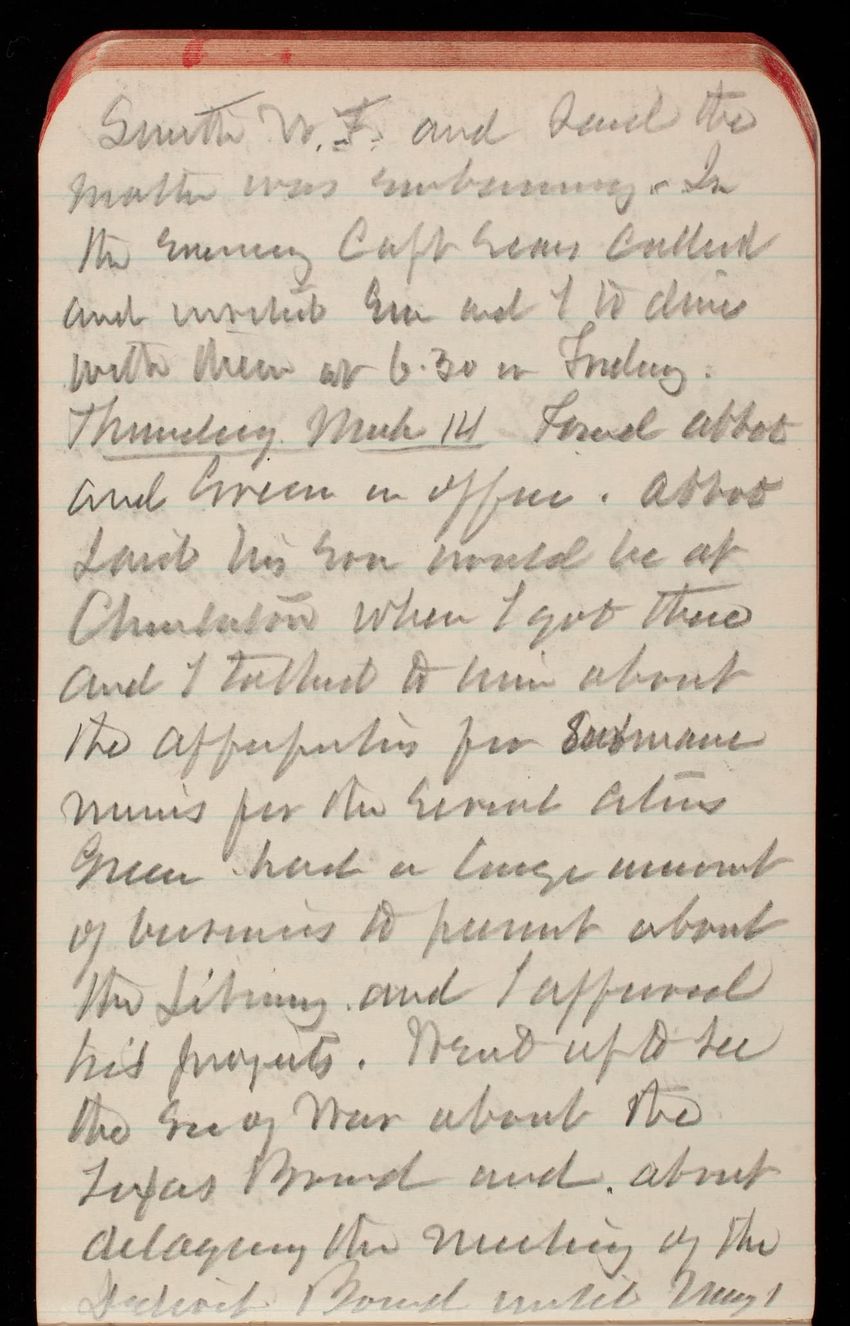 Smith W.F. and said the
matter was embarrassing. In
the evening Capt Sears called
and invited Eva and I to dine
with them at 6.30 on Friday.
Thursday March 14 Found Abbot
and Green in office. Abbot
said his son would be at
Charleston when I got there
and I talked to him about
the apportion for Submarine
mines for the several cities
Green had a large amount
of business to present about
the Library and I approved
his projects. Went up to see
the Sec of War about the
Texas Board and about
delaying the meeting of the
Detroit Board until May 1